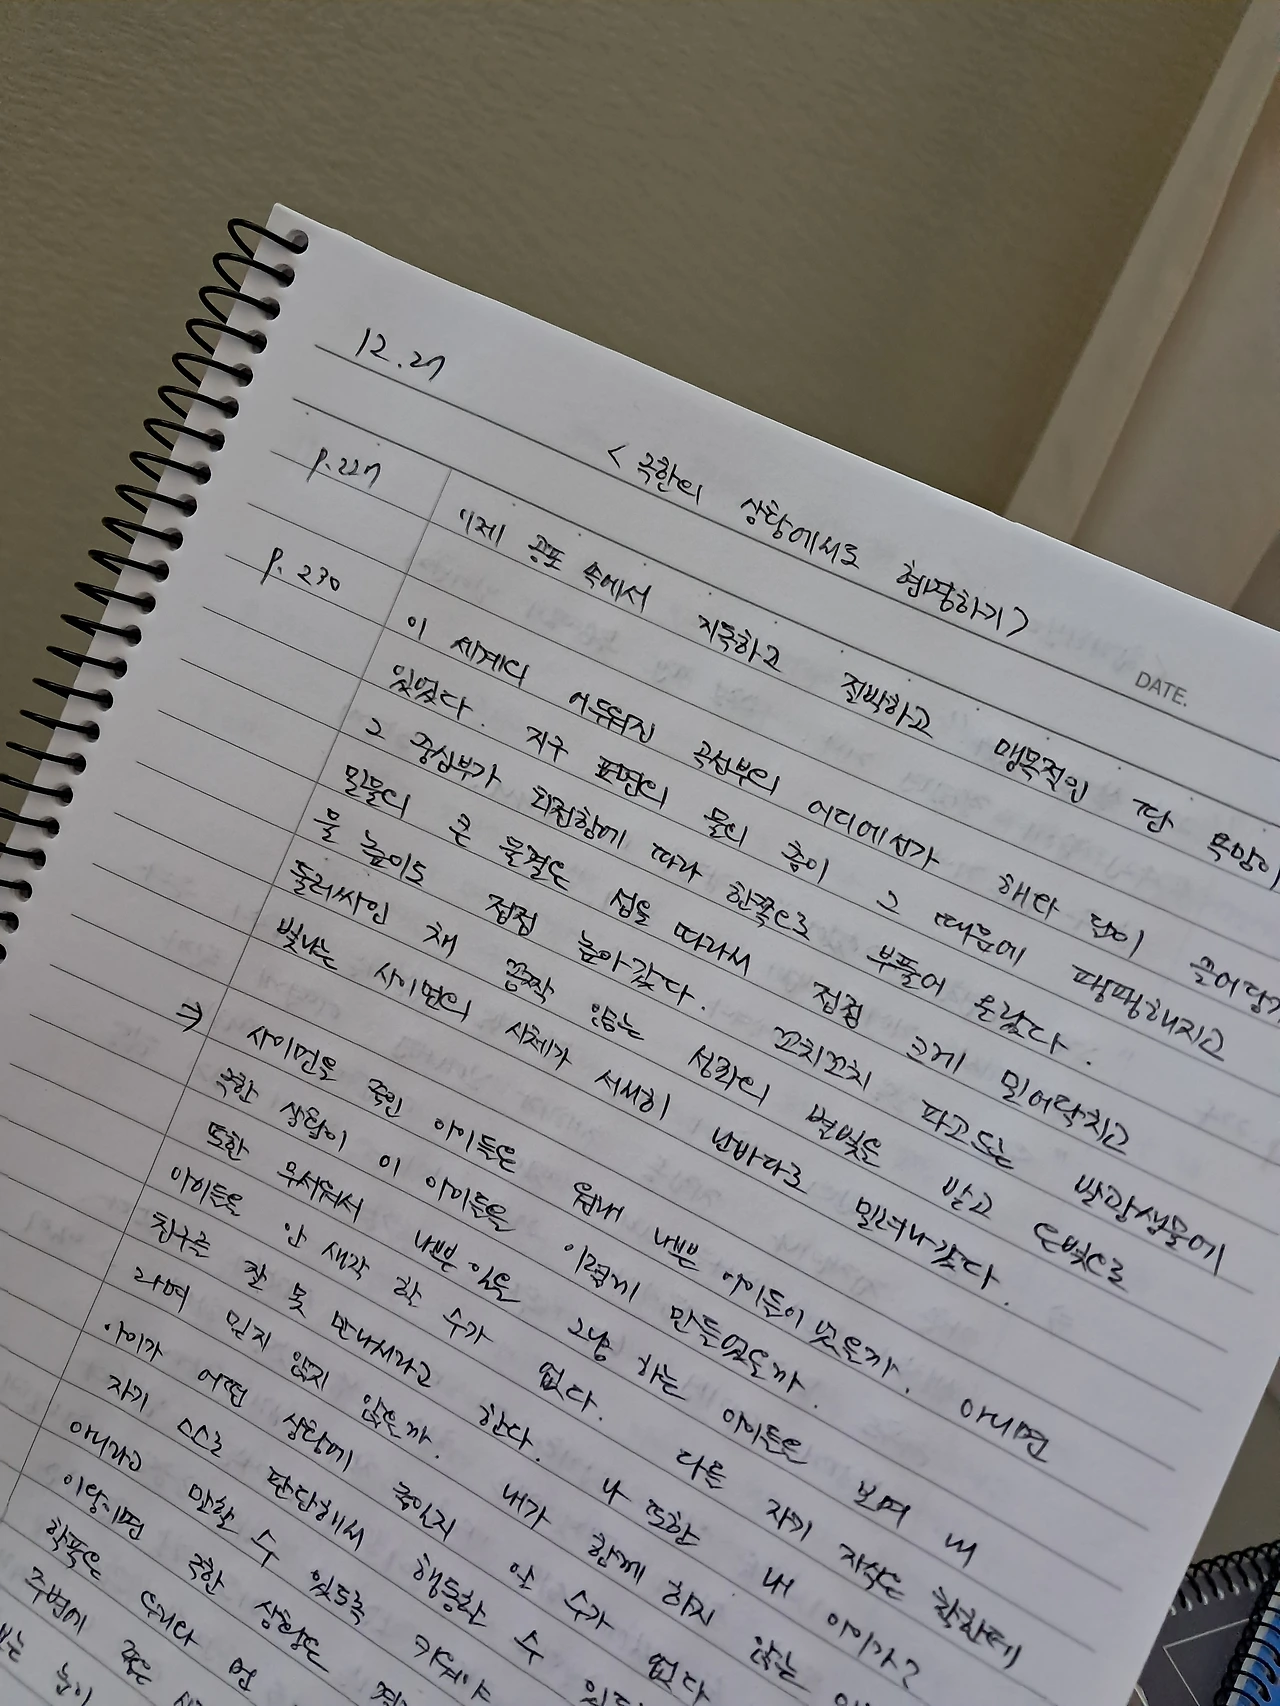 12.27
< 극한의 상황에서도 현명하기 >
DATE.
p.227 이제 공포 속에서 지독하고 절박하고 맹목적인 딴 욕망이
p.230 이 세계의 어두워진 곡선부의 어디에선가 해와 달이 끌어당기
있었다. 지구 표면의 물의 층이 그 때문에 팽팽해지고
그 중심부가 회전함에 따라 한쪽으로 부풀어 올랐다.
밀물의 큰 물결은 섬을 따라서 점점 크게 밀어닥치고
물 높이도 점점 높아갔다. 꼬치꼬치 파고드는 발광생물에
둘러싸인 채 꼼짝 않는 성좌의 별빛을 받고 은빛으로
빛나는 사이먼의 시체가 서서히 난바다로 밀려나갔다.
⇒ 사이먼을 죽인 아이들은 원래 나쁜 아이들이었을까. 아니면
극한 상황이 이 아이들을 이렇게 만들었을까.
또한 무서워서 나쁜 일을 그냥 하는 아이들을 보며 내
아이들을 안 생각 할 수가 없다. 다들 자기 자식은 착한데
친구를 잘 못 만나서라고 한다. 나 또한 내 아이가?
라며 믿지 않지 않을까. 내가 함께 하지 않는
아이가 어떤 상황에 놓일지 알 수가 없다
자기 스스로 판단해서 행동할 수
아니라고 말할 수 있도록 키워야
이왕이면 극한 상황은
학폭은
주변에